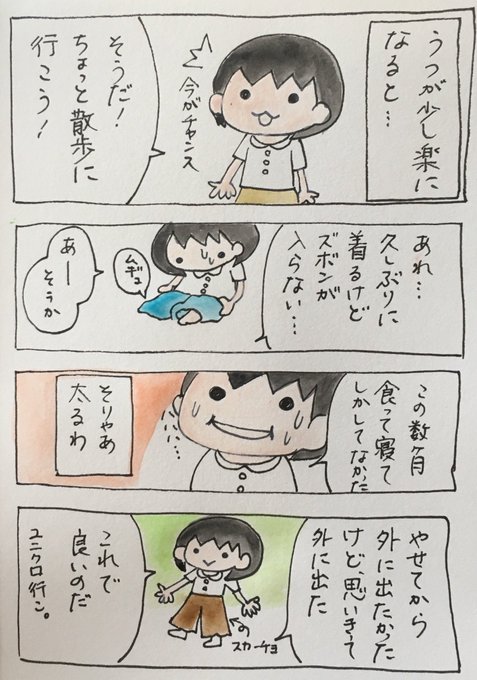 うつが少し楽に
なると…
今がチャンス
そうだ!
ちょっと散歩に
行こう!
あれ…
久しぶりに
着るけど
ズボンが
入らない…
ムギュ
あー
そうか
この数ヶ月
食って寝て
しかしてなかった
そりゃあ
太るわ
やせてから
外に出たかった
けど、思いきって
外に出た
スカーチョ
これで
良いのだ
ユニクロ行こ。